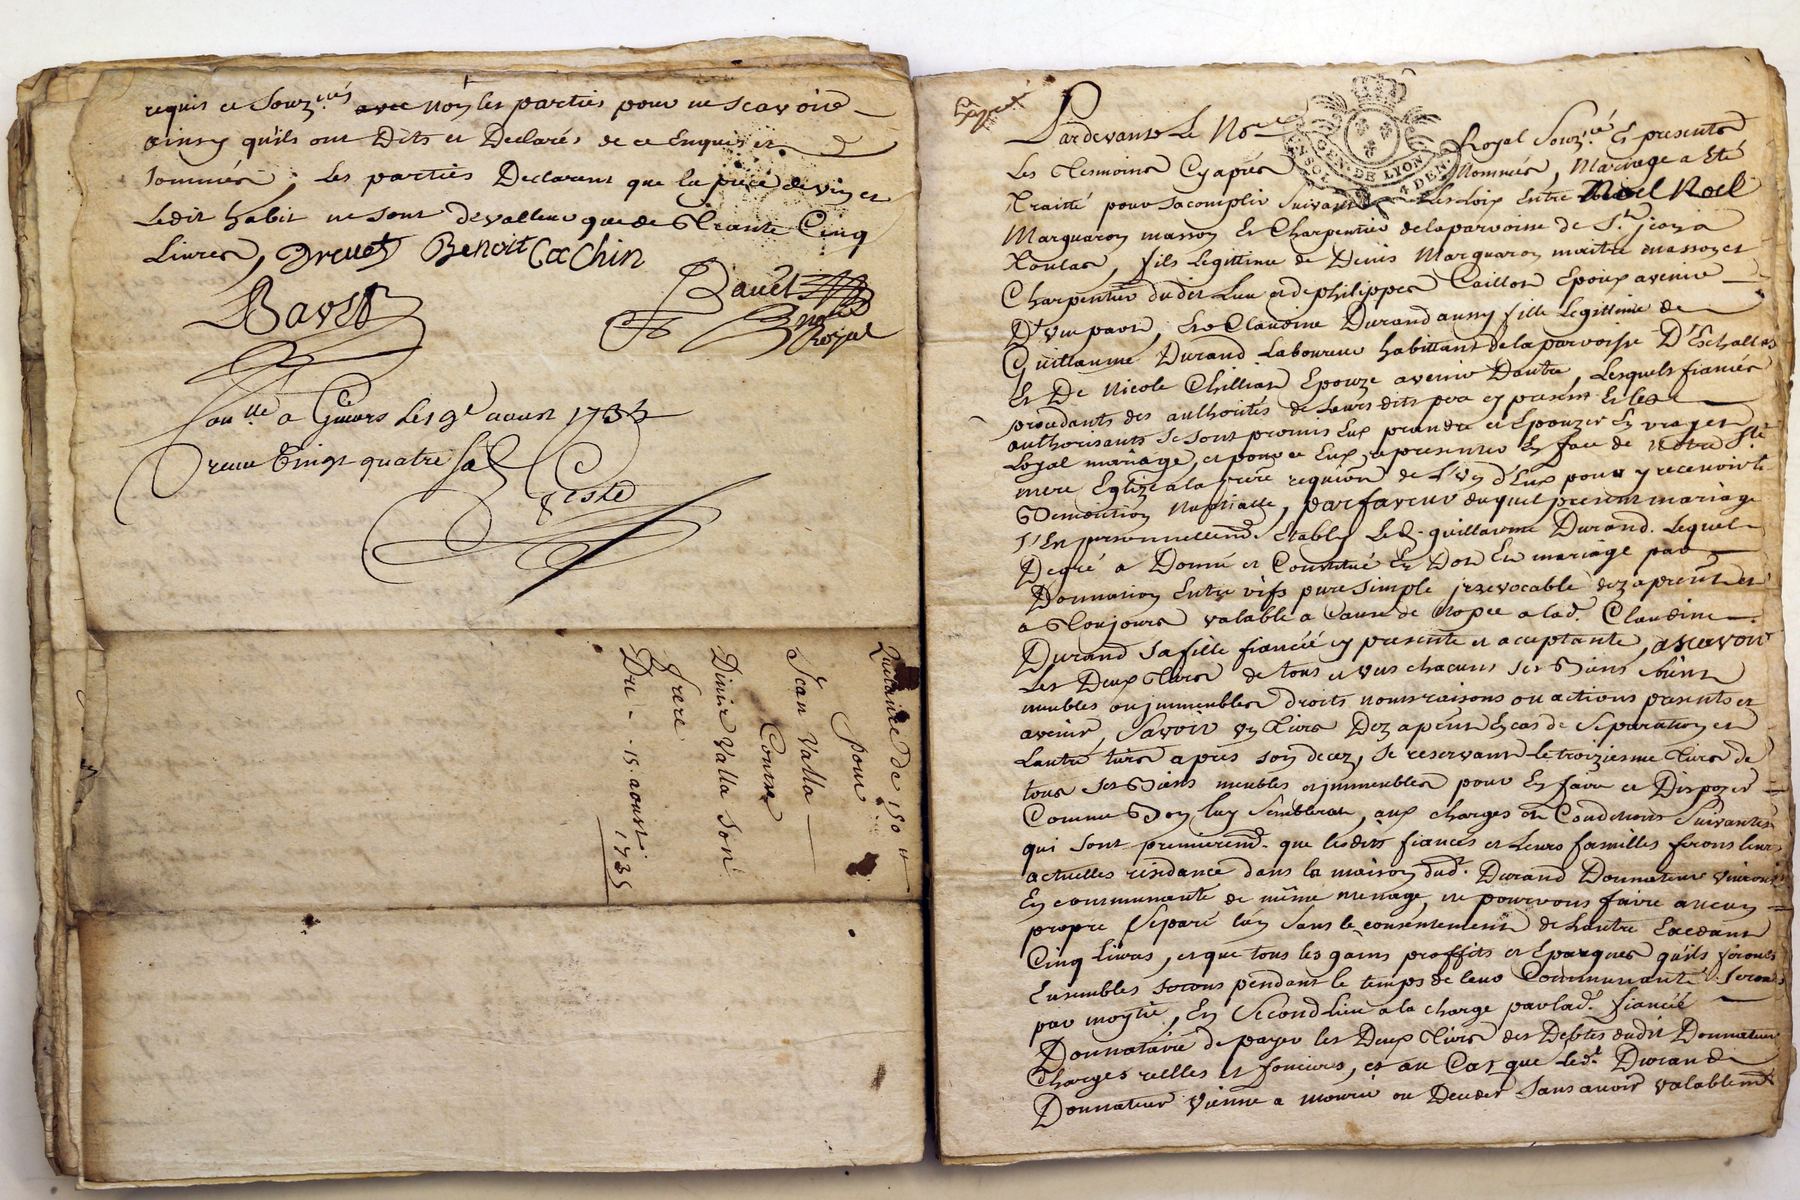 requis et Souz.nés avec Noy les parties pour ne scavoire
ainsy qu'ils ont Dits et Declarés de ce Enquis et
sommés, Les parties Declarent que la piece de vin et
Ledit habit ne sont de valleur que de Trante Cinq
Livres, Drevet Benoit Cochin
Bavet
Bavet
Nore
Royal
Con.lle a Givors Le 19e aoust 1735
receu Vingt quatre sols
Teste
Quittance de 150 lt
pour
Jean Valla
Contre
Dinis Valla son
frere
Du - 15 aoust 1735
Exped
GEN. DE LYON
4 DEN.
Pardevant Le No.re Royal Souz.né Es presents
Les Tesmoins Cy apres Nommés, Mariage a Eté
Traitté pour sacomplir Suivant Les Loix Entre Noel Noel
Marquaron masson Et Charpentier de la parroisse de St. jean a
Toulas, fils Legittime de Denis Marquaron maitre masson et
Charpentier dudit Lieu et de philippes Caillot Epoux avenir
D'Vne part, Et Claudine Durand aussy fille Legittime de
Guillaume Durand Laboureur habittant de la parroisse D'Eschallas
Et De Nicole Chillias Epouze avenir Dautre, Lesquels fiancés
procedants des authorités de Leurs dits pere cy present Et les
authorisants Se sont promis Eux prandre et Epouzer En vray et
Loyal mariage, et pour ce Eux representer En face de Notre Ste
mere Eglize a la p.re requi.on de L'Vn D'Eux pour y recevoir la
Benediction Nuptialle, par faveur duquel present mariage
s'Est personnellem.t Etably Led. guillaume Durand. Lequel
De gré a Donné et Constitué En Dot En mariage par
Donnation Entre vifs pure simple jrrevocable dez apresent et
a Toujours valable a Cause de Nopce a lad. Claudine
Durand sa fille fiancéé cy presente et acceptante, a scavoir
Les Deux Tiers de tous et vns chacuns ses Biens
meubles ou jmmeubles droits noms raisons ou actions presents et
avenir, Savoir vn Tiers Dez apent En cas de Separation et
Lautre tiers apres son decez, Se reservant le troiziesme Tiers de
tous ses Biens meubles et jmmeubles pour En faire et Dispozer
Comme Bon luy Semblerat, aux charges et Conditions Suivantes
qui sont premierem.t que lesdits fiances et Leurs familles feront leurs
actuelles residance dans la maison dud. Durand Donnateur vivront
En communauté de même menage, ne pourront faire aucun
propre Separé lun sans le consentement de Lautre Excedant
Cinq Livres, et que tous les gains proffits et Epargnes qu'ils feront
Ensembles seront pendant le temps de leur Communauté. Seront
par moytié, En Second Lieu a la charge par lad. fiancéé
Donnataire de payer les Deux Tiers des Debtes dudit Donnateur
Charges reelles et foncieres, et au Cas que Led.t Durand
Donnateur Vienne a mourir ou Deceder Sans avoir valablem.t